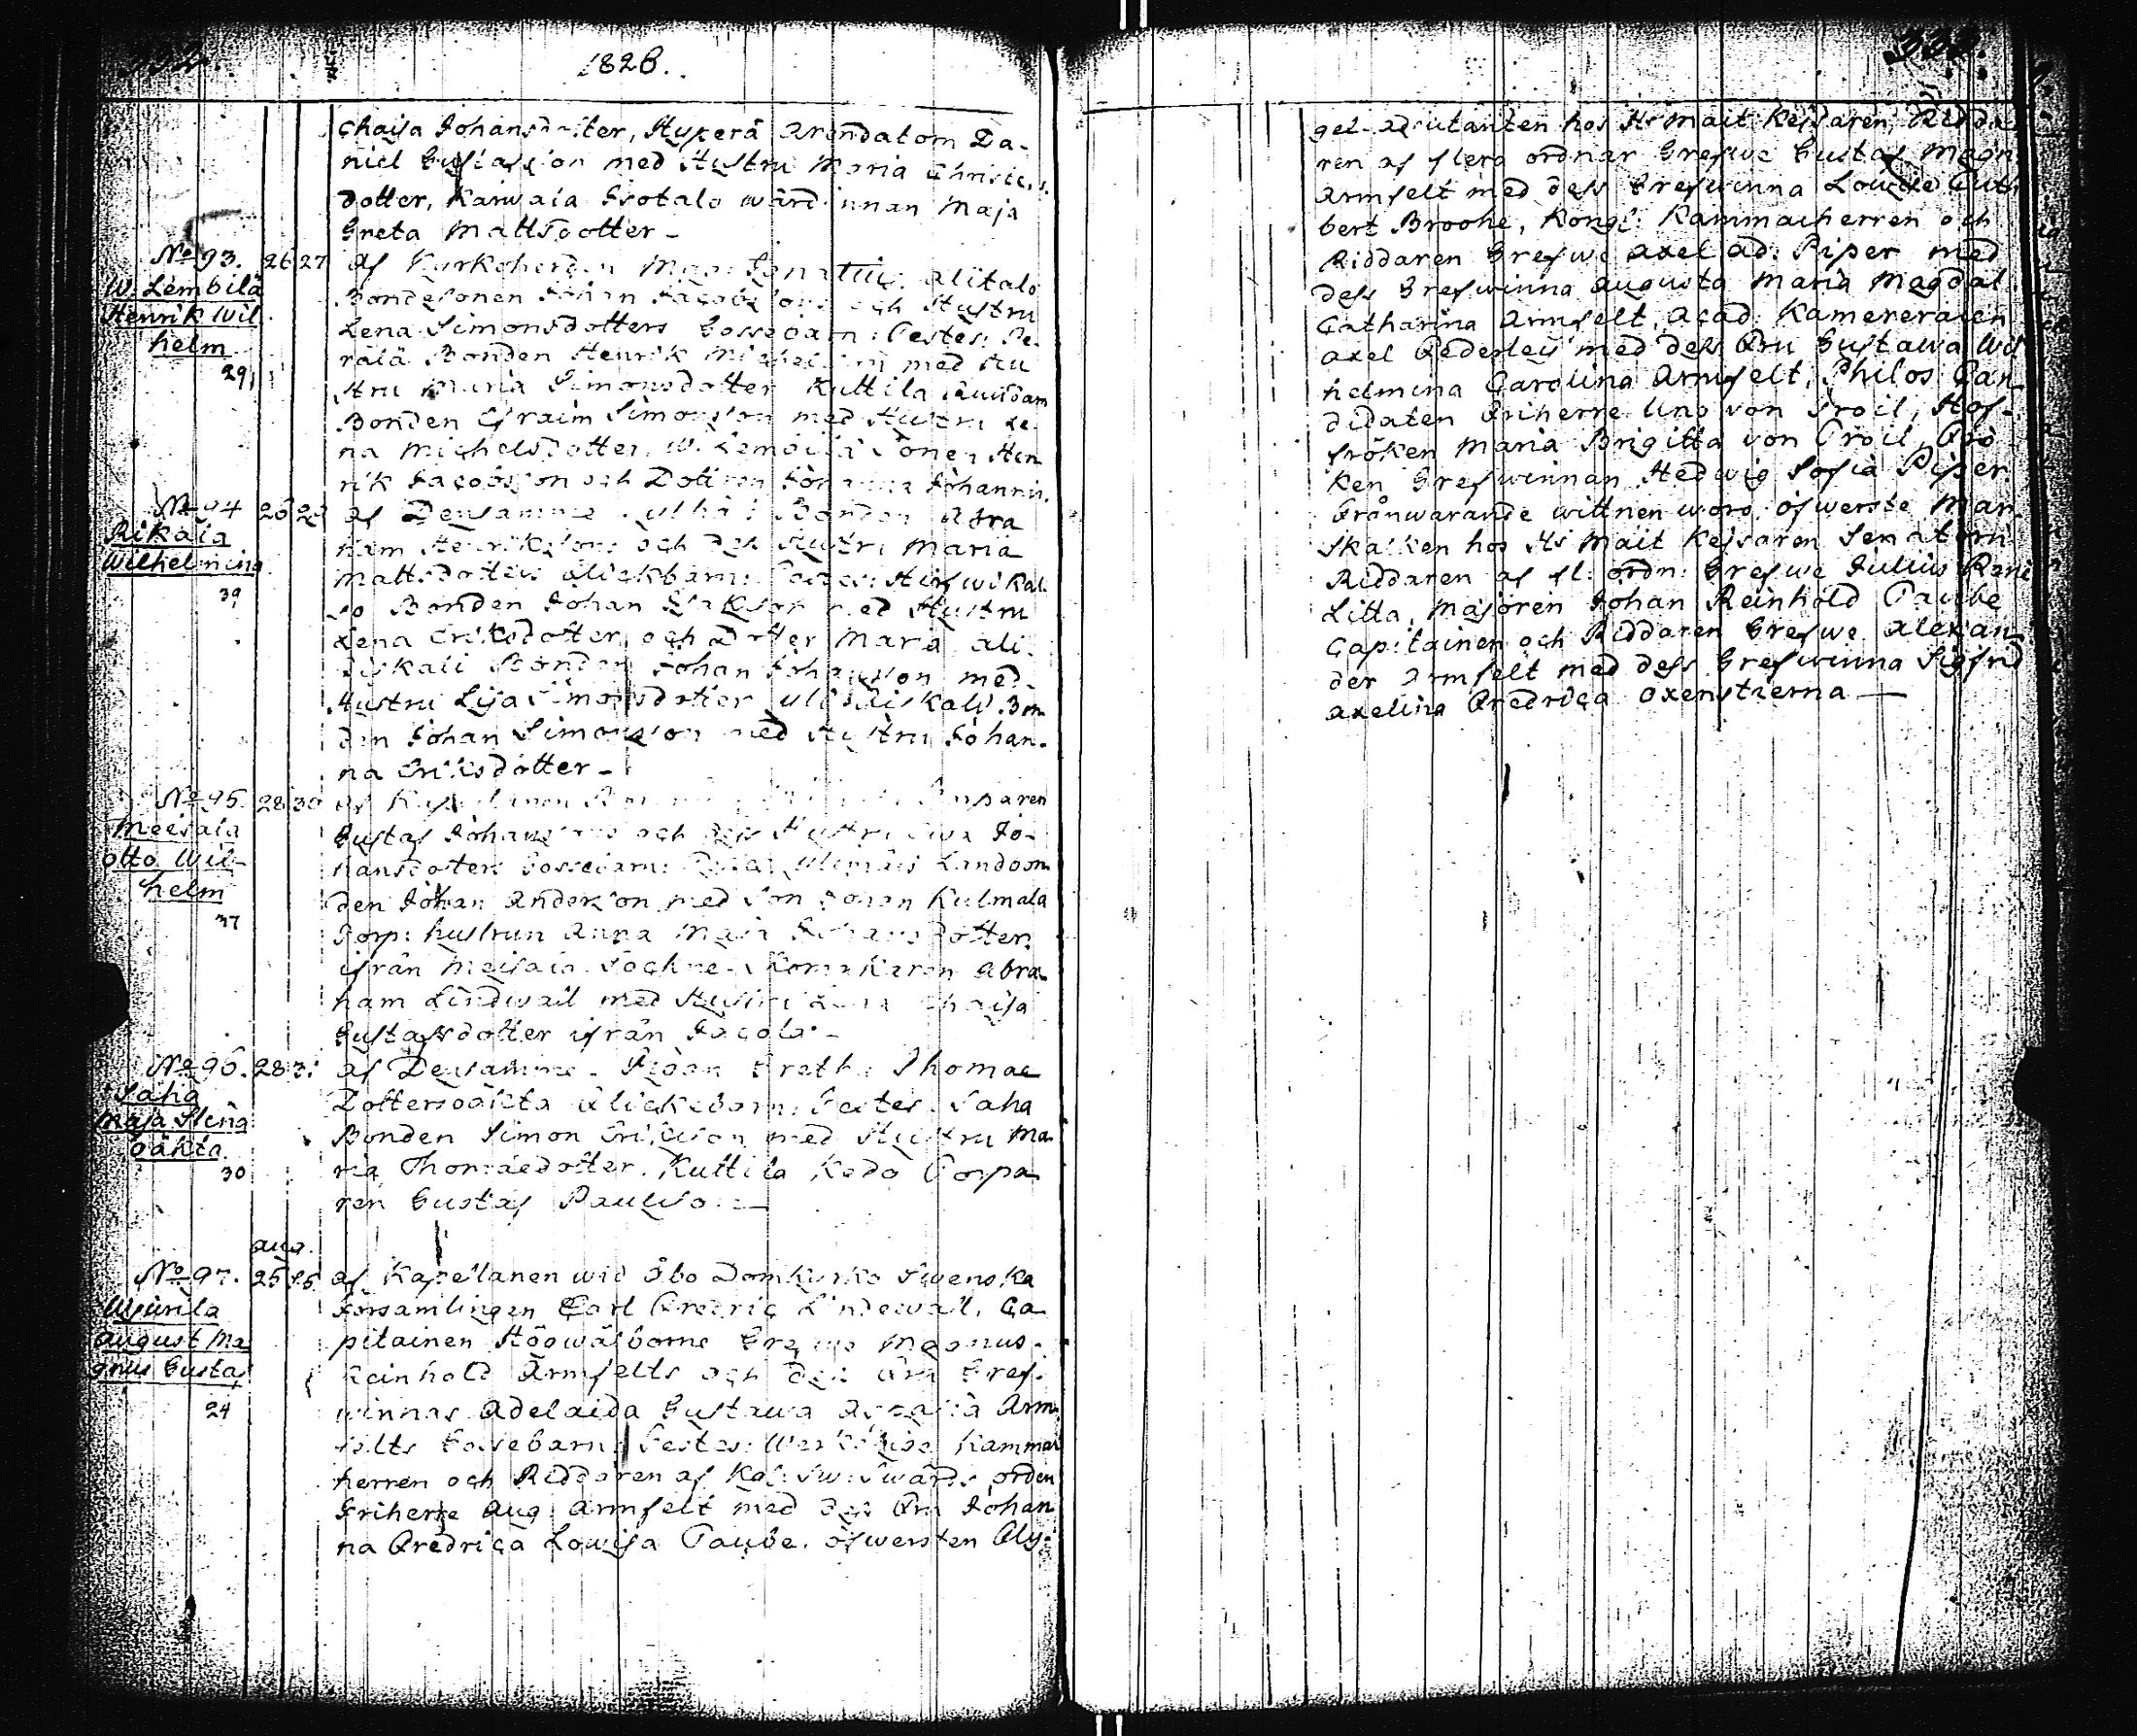 1828.
chaisa Johansdotter, Stuperä Arendatorn Da-
niel Gustafsson med Hustru Maria Christers-
dotter, Karwaia Isotalo wärdinnan Maja
Greta Mattsdotter -
No 93. 26 27 af Kyrkoherden Mag: Ignatius. Alitalo
W. Lembilä
Bondesonen Johan Jacobssons och Hustru
Henrik Wil
Lena Simonsdotters Gossebarn: Testes: Pe-
helm
rälä Bonden Henrik Michelsson med Hu
29
stru Maria Simonsdotter Kuttila
Bonden Efraim Simonsson med Hustru Le-
na Michelsdotter. W. Lembilä Sonen Hen
rik Jacobsson och Dottren Johanna Johannis.
No 94 26 28 af Densamme. Bonden Abra
Rikala
ham Henrikssons och dess Hustru Maria
Wilhelmina
Mattsdotters Flickbarn: Testes:
39
so Bonden Johan Isaksson med Hustru
Lena Eriksdotter och Dotter Maria Ali
Bonden Johan Johansson med
Hustru Lisa Simonsdotter Bon
den Johan Simonsson med Hustru Johan-
na Eriksdotter -
No 95. 28 30 af Kapellanen Torparen
Meisala
Gustaf Johanssons och dess Hustru Ewa Jo-
Otto Wil-
hansdotters Gossebarn: Testes: Landbon
helm
den Johan Andersson med Son Johan Kulmala
37
Torp: hustrun Anna Maja Johansdotter
ifrån Meisala. Sockne-Skomakaren Abra
ham Lindwall med Hustru Lena Chaisa
Gustafsdotter ifrån Jacola -
No 96. 28 31 af Densamme. Greth: Thomae
Saha
Dotters oäkta Flickebarn: Testes. Saha
Maja Stina
Bonden Simon Ericsson med Hustru Ma
oäkta.
ria Thomaedotter. Kuttila Kedo Torpa
30
ren Gustaf Paulsson -
Aug.
No 97. 25 25 af Kapellanen wid Åbo Domkyrko Swenska
Wiurila
Församlingen Carl Fredric Lindewall, Ca
August Ma
pitainen Högwälborne Grefwe Magnus
gnus Gustaf
Reinhold Armfelts och dess Fru Gref-
24
winnas Adelaida Gustawa Aspasia Arm
felts Gossebarn: Testes: Werkelige Kammar
herren och Riddaren af Kgl: Sw: Swärds orden
Friherre Aug: Armfelt med dess Fru Johan
na Fredrica Lowisa Taube. Öfwersten Flyg:
gel-adjutanten hos Hs Mait: Kejsaren, Ridda-
ren af flera ordnar Grefwe Gustaf Magn:
Armfelt med dess Grefwinna Lowise Cuth
bert Brooke, Kongl: Kammarherren och
Riddaren Grefwe Axel Ad: Piper med
dess Grefwinna Augusta Maria Magdal.
Catharina Armfelt, Acad: Kamereraren
Axel Federley med dess Fru Gustawa Wil
helmina Carolina Armfelt, Philos: Can
didaten Friherre Uno von Troil, Hof-
fröken Maria Brigitta von Troil, Frö-
ken Grefwinnan Hedwig Sofia Piper.
Frånwarande wittnen woro: Öfwerste Mar-
skalken hos Hs Mait Kejsaren Senatorn
Riddaren af fl: ordn: Grefwe Julius Rene
Litta, Majoren Johan Reinhold Taube
Capitainen och Riddaren Grefwe Alexan-
der Armfelt med dess Grefwinna Sigfrid
Axelina Fredrica Oxenstierna -